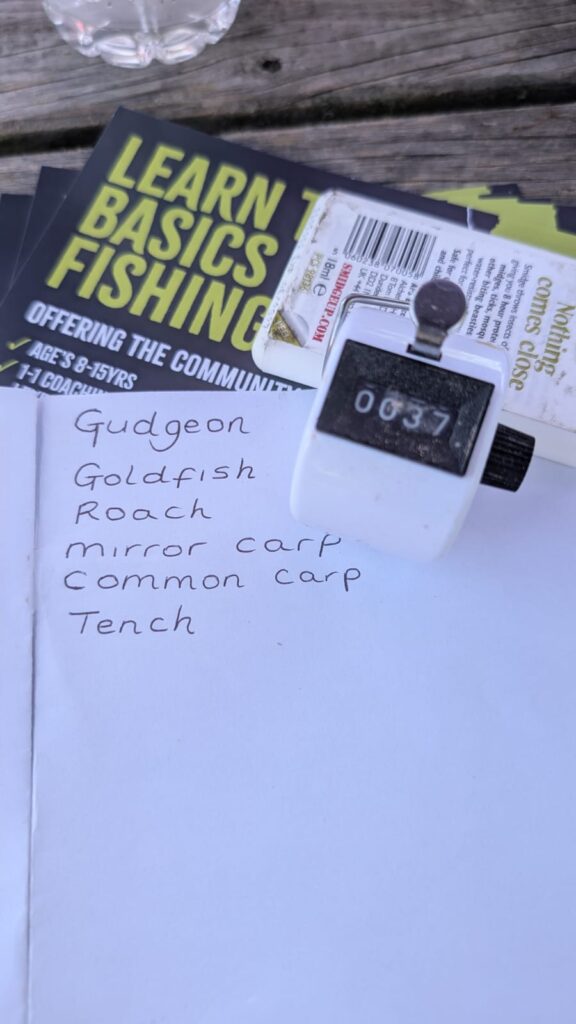 LEARN T
BASICS
FISHING
OFFERING THE COMMUNIT
AGE'S 8-15YRS
1-1 COACHIN
Nothing
comes close
SMIDGEUP.COM
18ml e
0037
Gudgeon
Goldfish
Roach
mirror carp
Common carp
Tench